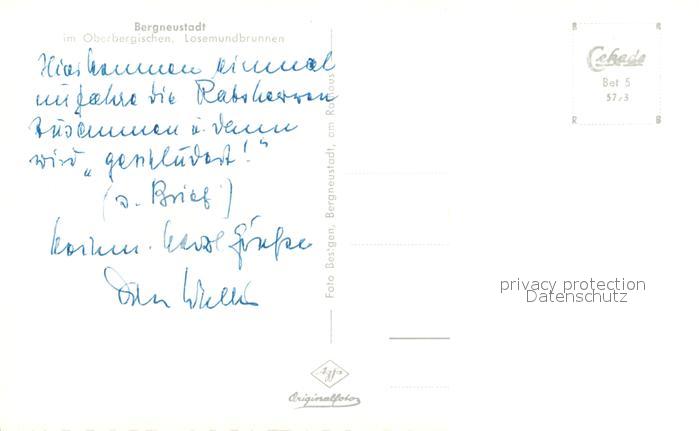 Bergneustadt
im Oberbergischen, Losemundbrunnen
Hier kommen einmal
im Jahre die Ratsherren
zusammen u. dann
wird „geschludert!“
(s. Brief)
Dein Willi
Foto Bestgen, Bergneustadt, am Rathaus
Agfa
Originalfoto
R B
Cekade
Bet 5
57/3
R B
privacy protection
Datenschutz